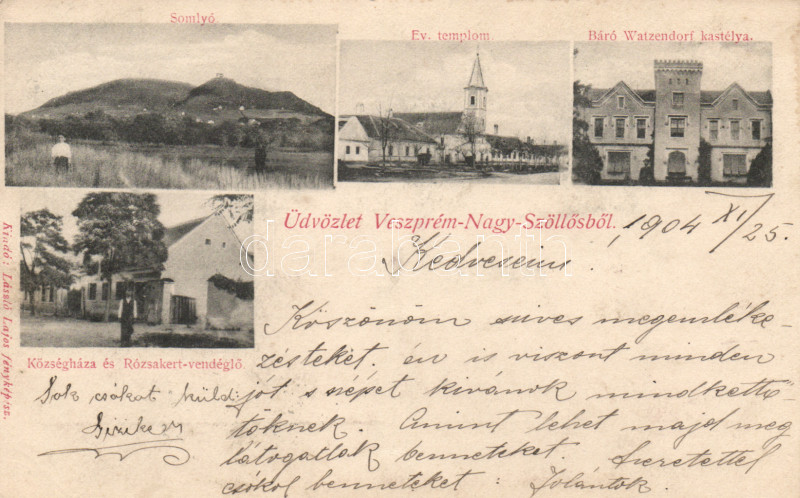 Somlyó
Ev. templom.
Báró Watzendorf kastélya.
Üdvözlet Veszprém-Nagy-Szöllősből.
1904 XI/25.
Kiadó: László Lajos fényképész.
Községháza és Rózsakert-vendéglő
Kedveseim!
Köszönöm szives megemléke-
zésteket, én is viszont minden
jót s szépet kivánok mindkettő-
töknek. Amint lehet majd meg
látogatlak benneteket. Szeretettel
csókol benneteket: Jolántok.
Sok csókot küld:
Gizike
darabanth.com